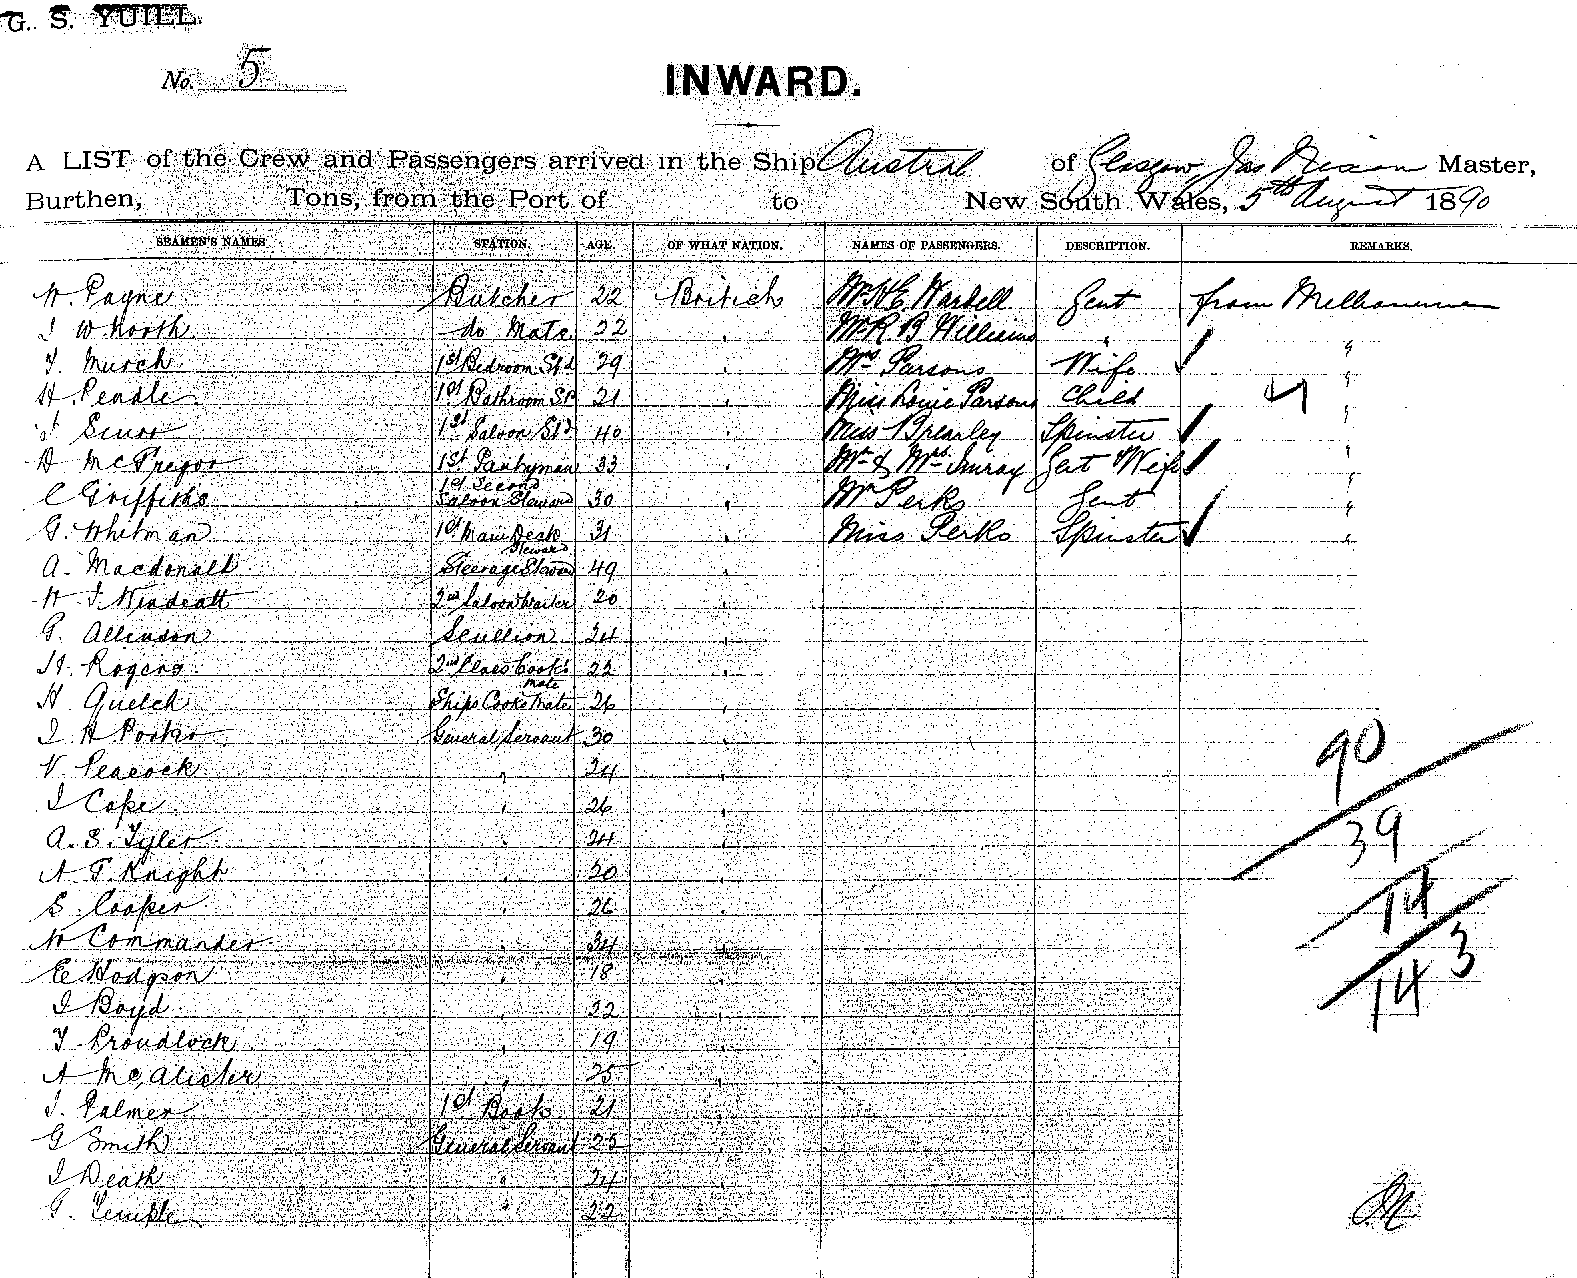 G. S. YUILL.
No. 5
INWARD.
A LIST of the Crew and Passengers arrived in the Ship Austral of Glasgow, Jas Nixon Master,
Burthen, Tons, from the Port of to New South Wales, 5th August 1890
SEAMEN'S NAMES STATION. AGE. OF WHAT NATION. NAMES OF PASSENGERS. DESCRIPTION. REMARKS.
W. Payne Butcher 22 British Mr H E Wardell Gent from Melbourne
J W North do Mate 22 " Mr R. B Williams " "
T. Murch 1st Bedroom Std 29 " Mrs Parsons Wife "
H. Pendle 1st Bathroom St 21 " Miss Louie Parsons Child 4 "
40 1st Saloon Std " Miss Brearley Spinster "
D McGregor 1st Pantryman 33 " Mr & Mrs Imray Gent Wife "
C Griffiths 1st Second Saloon Steward 30 " Mr Perks Gent "
G. Whitman 1st Main Deck Steward 31 " Miss Perks Spinster "
A. Macdonald Steerage Steward 49
W J Windeatt 2nd Saloon Waiter 20 "
G. Allinson Scullion 24
H. Rogers 2nd Class Cook's mate 22 "
H Quelch Ships Cooks Mate 26 "
J H General Servant 30 "
V. Peacock " 24 "
J Cope " 26 "
A. E. Tyler 24 "
A. T. Knight " 20 "
S. Cooper " 26 "
W Commander " 34 "
E Hodgson " 18 "
J Boyd " 22 "
T Proudlock " 19 "
A McAlister " 25 "
J. Palmer 1st 21 "
G Smith General Servant 25 "
J Death " 24 "
G. Temple " 22
90
39
14
3
14